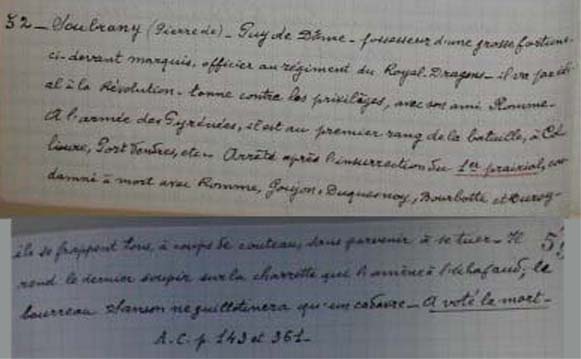 52 - Soubrany (Pierre de) - Puy de Dôme - possesseur d'une grosse fortune
ci-devant marquis, officier au régiment du Royal-Dragons - il va par idé
al à la Révolution - tonne contre les privilèges, avec son ami Romme -
A l'armée des Pyrénées, il est au premier rang de la bataille, à Col
lioure, Port Vendres, etc - Arrêté après l'insurrection du 1er prairial, con
damné à mort avec Romme, Goujon, Duquesnoy, Bourbotte et Duroy -
ils se frappent tous, à coups de couteau, sans parvenir à se tuer - Il
rend le dernier soupir sur la charrette qui l'amène à l'échafaud, le
bourreau Sanson ne guillotinera qu'un cadavre - A voté la mort -
A.C. p. 143 et 361 -